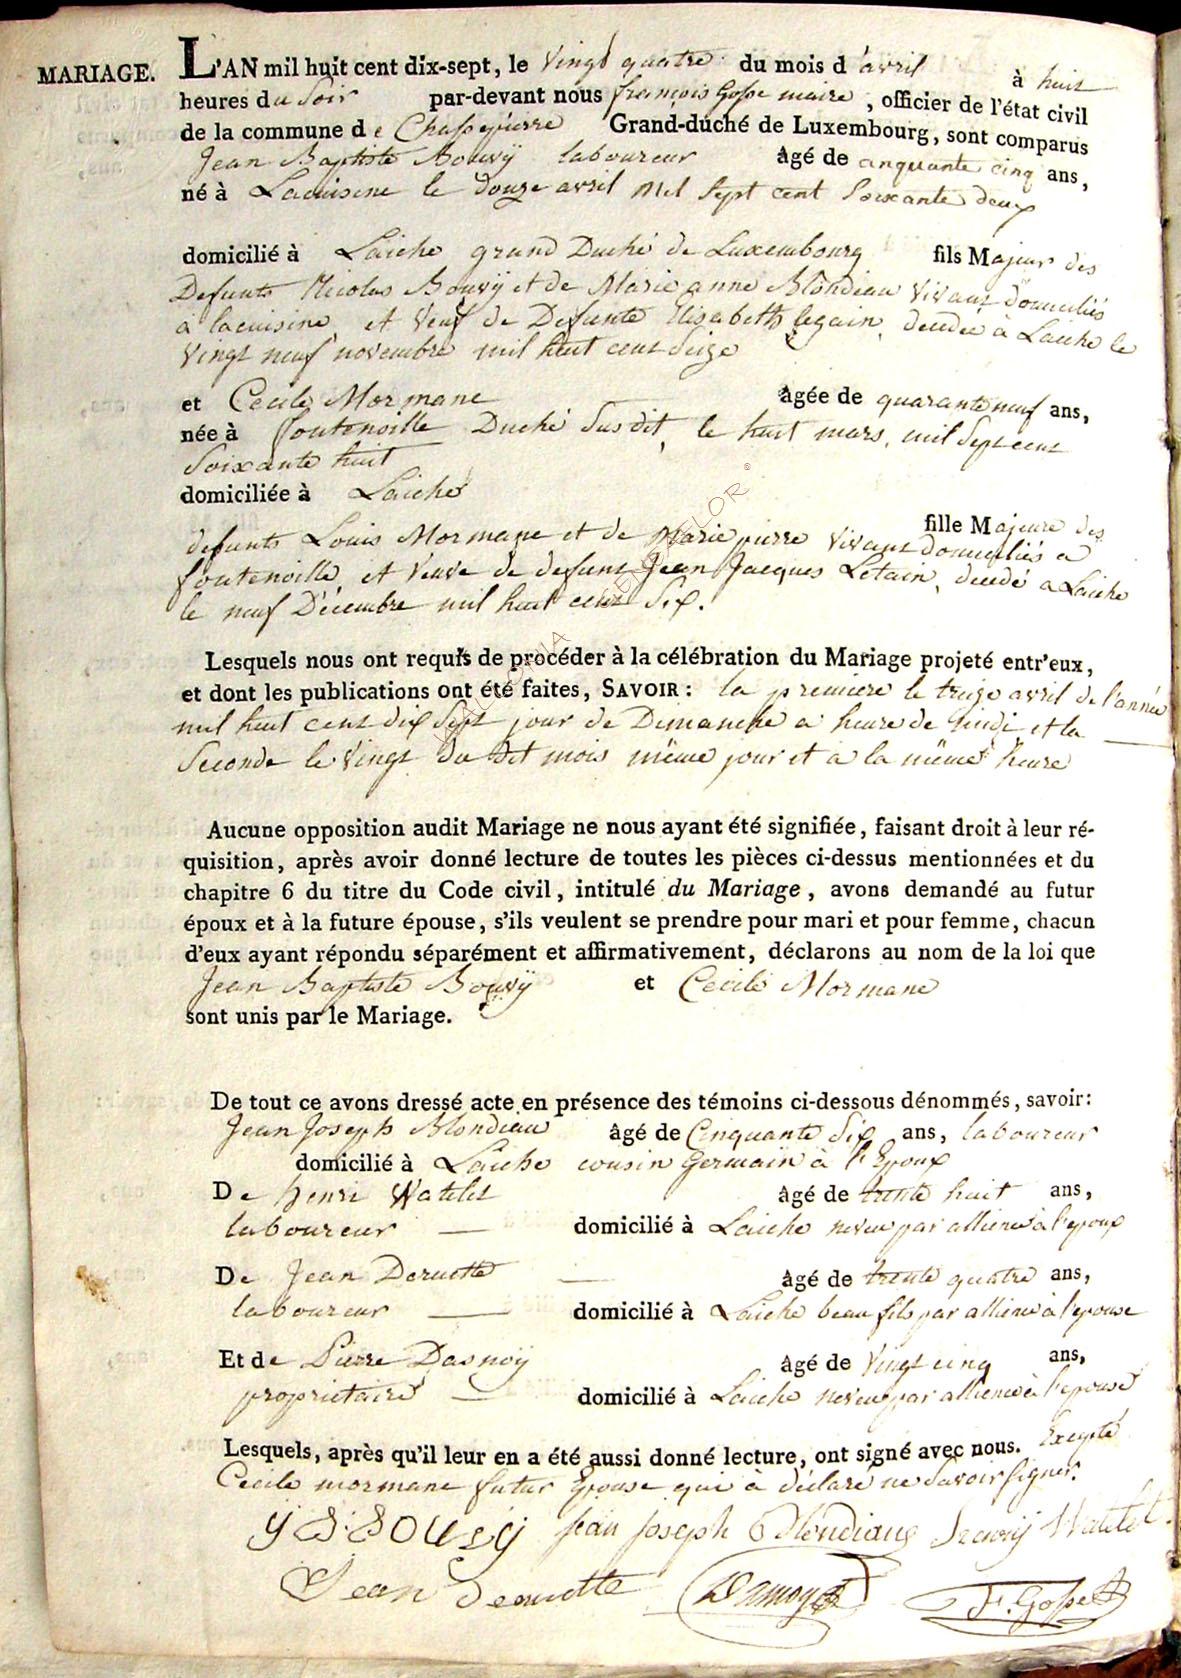 MARIAGE. L'AN mil huit cent dix-sept, le vingt quatre du mois d'avril à huit
heures du soir par-devant nous françois Gosse maire, officier de l'état civil
de la commune de Chassepierre Grand-duché de Luxembourg, sont comparus
Jean Baptiste Bouvÿ laboureur âgé de cinquante cinq ans,
né à Lacuisine le douze avril mil sept cent soixante deux
domicilié à Laiche grand Duché de Luxembourg fils Majeur des
Defunts Nicolas Bouvÿ et de Marie anne Blondiau vivant domiciliés
à lacuisine, et veuf de Defunte Elisabeth legain, decedée à Laiche le
vingt neuf novembre mil huit cent seize
et Cecile Mormane âgée de quarante neuf ans,
née à fontenoille Duché susdit, le huit mars, mil sept cent
soixante huit
domiciliée à Laiche
fille Majeure des
defunts Louis Mormane et de Marie pierre vivant domiciliés a
fontenoille, et veuve de defunt Jean Jacques Letain, decedé a Laiche
le neuf Décembre mil huit cent six.
Lesquels nous ont requis de procéder à la célébration du Mariage projeté entr'eux,
et dont les publications ont été faites, SAVOIR: la premiere le treize avril de l'année
mil huit cent dix sept jour de Dimanche a heure de midi et la
seconde le vingt du dit mois même jour et a la même heure
Aucune opposition audit Mariage ne nous ayant été signifiée, faisant droit à leur ré-
quisition, après avoir donné lecture de toutes les pièces ci-dessus mentionnées et du
chapitre 6 du titre du Code civil, intitulé du Mariage, avons demandé au futur
époux et à la future épouse, s'ils veulent se prendre pour mari et pour femme, chacun
d'eux ayant répondu séparément et affirmativement, déclarons au nom de la loi que
Jean Baptiste Bouvÿ et Cecile Mormane
sont unis par le Mariage.
De tout ce avons dressé acte en présence des témoins ci-dessous dénommés, savoir:
Jean Joseph Blondiau âgé de Cinquante six ans, laboureur
domicilié à Laiche cousin Germain à l'Epoux
De henri Watelet âgé de trente huit ans,
laboureur domicilié à Laiche neveu par allience à l'epoux
De Jean Deruette âgé de trente quatre ans,
laboureur domicilié à Laiche beau fils par allience à l'epouse
Et de Pierre Dasnoÿ âgé de vingt cinq ans,
proprietaire domicilié à Laiche neveu par allience à l'epouse
Lesquels, après qu'il leur en a été aussi donné lecture, ont signé avec nous. Excepté
Cecile mormane futur Epouse qui à déclaré ne savoir signer.
Jean Joseph Blondiau Watelet
Jean Deruette F. Gosse